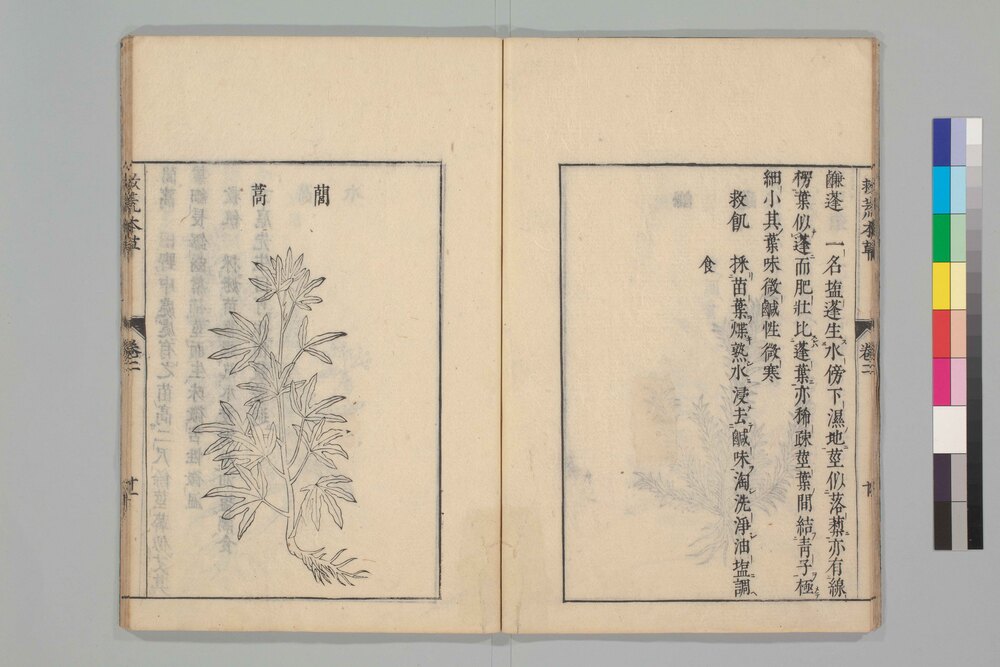 鹻蓬 一名塩蓬生水傍下濕地莖似落藜亦有線
楞葉似蓬而肥壯比蓬葉亦稀疎莖葉間結青子極
細小其葉味微鹹性微寒
救飢 採苗葉煠熟水浸去鹹味淘洗淨油塩調
食
救荒本草 卷二
蕳
蒿
救荒本草 卷二